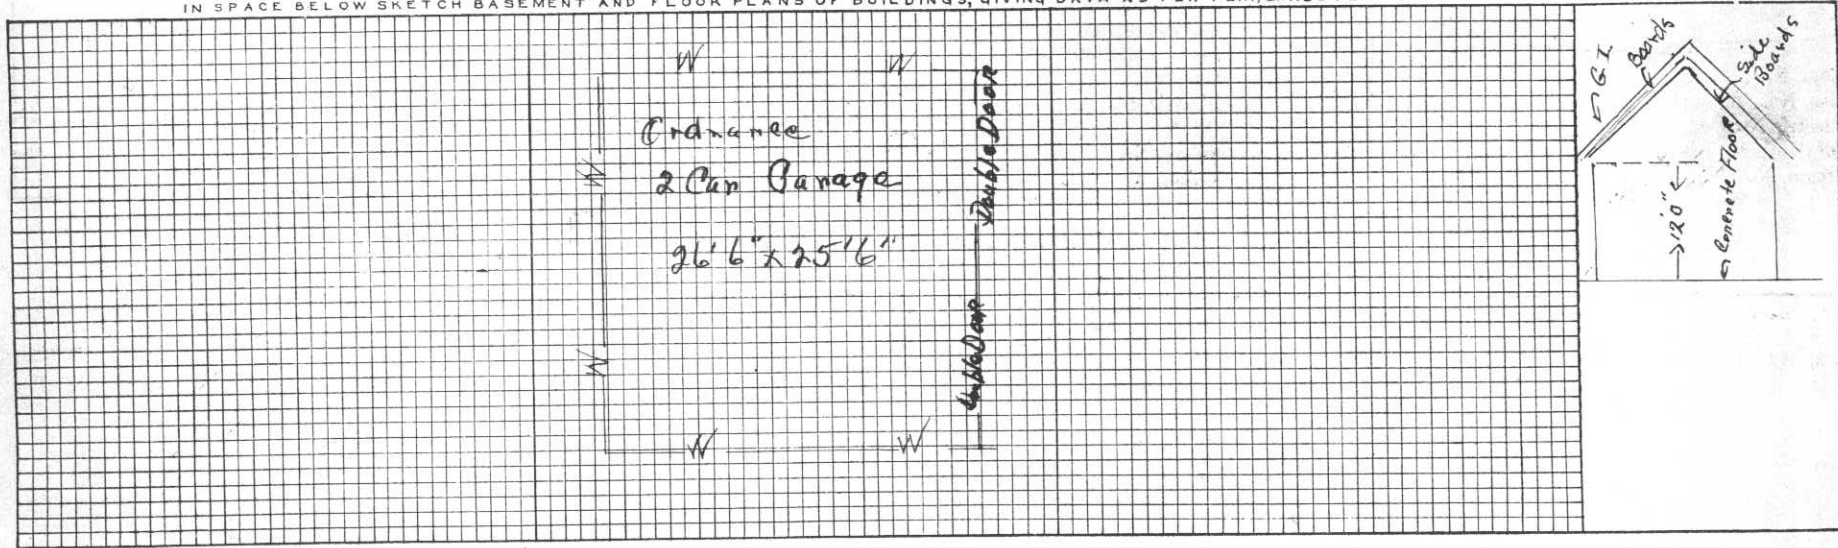 IN SPACE BELOW SKETCH BASEMENT AND FLOOR PLANS OF BUILDINGS, GIVING DATA AS PER
W W
Ordnance
2 Car Garage
26'6" x 25'6"
W
W
W W
Double Door
Double Door
G.I.
Boards
Side
Boards
12'0"
Concrete Floor